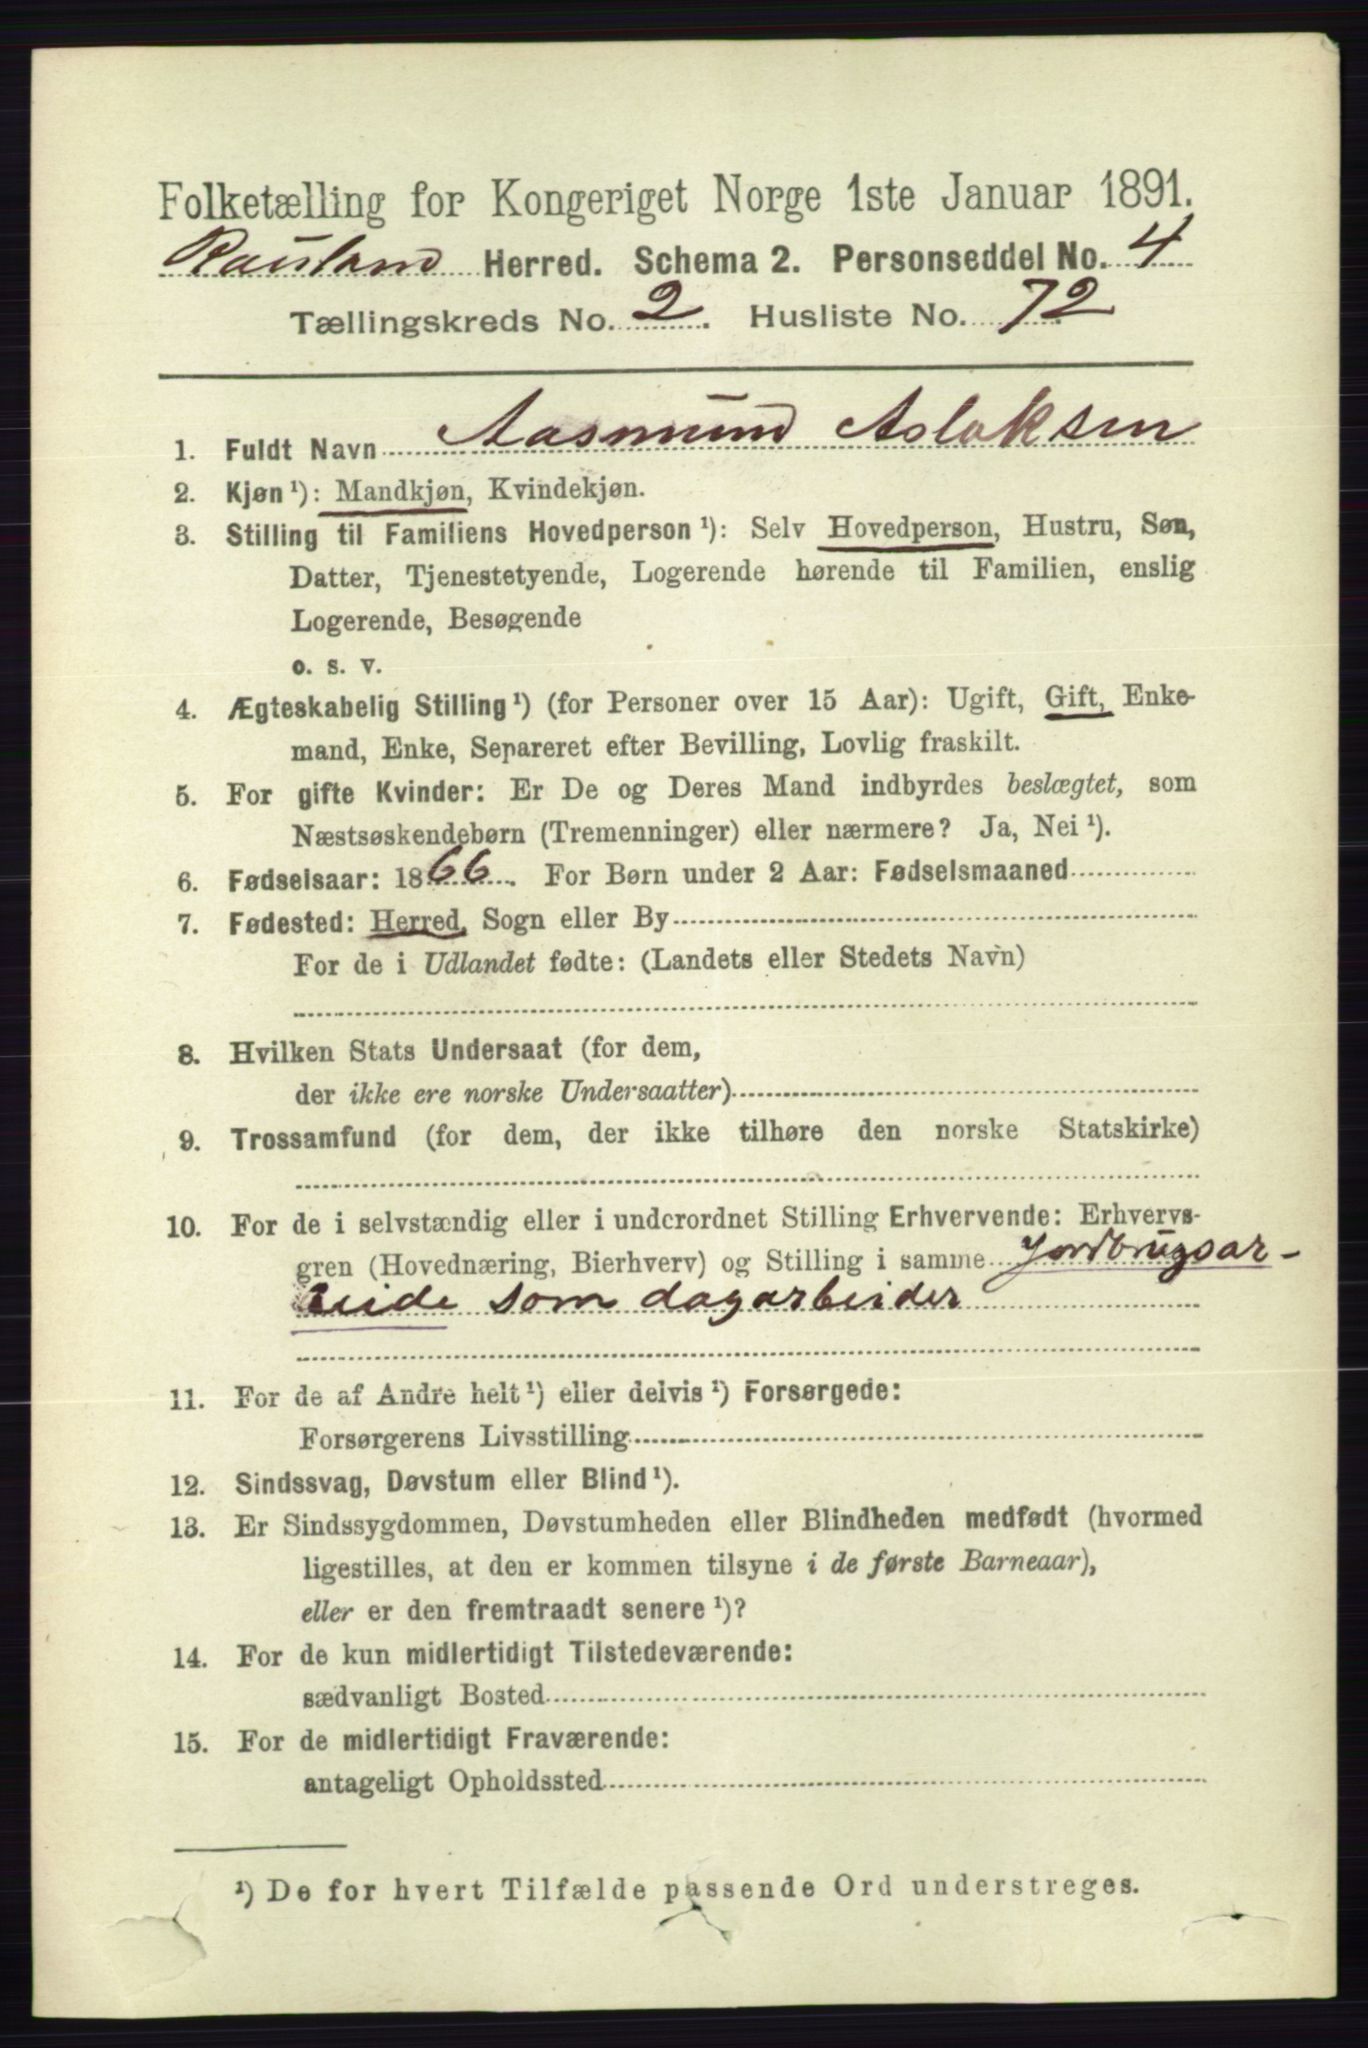 Folketælling for Kongeriget Norge 1ste Januar 1891.
Rauland Herred. Schema 2. Personseddel No. 4
Tællingskreds No. 2. Husliste No. 72
1. Fuldt Navn Aasmund Aslaksen
2. Kjøn ¹): Mandkjøn, Kvindekjøn.
3. Stilling til Familiens Hovedperson ¹): Selv Hovedperson, Hustru, Søn,
Datter, Tjenestetyende, Logerende hørende til Familien, enslig
Logerende, Besøgende
o. s. v.
4. Ægteskabelig Stilling ¹) (for Personer over 15 Aar): Ugift, Gift, Enke-
mand, Enke, Separeret efter Bevilling, Lovlig fraskilt.
5. For gifte Kvinder: Er De og Deres Mand indbyrdes beslægtet, som
Næstsøskendebørn (Tremenninger) eller nærmere? Ja, Nei ¹).
6. Fødselsaar: 1866. For Børn under 2 Aar: Fødselsmaaned
7. Fødested: Herred, Sogn eller By
For de i Udlandet fødte: (Landets eller Stedets Navn)
8. Hvilken Stats Undersaat (for dem,
der ikke ere norske Undersaatter)
9. Trossamfund (for dem, der ikke tilhøre den norske Statskirke)
10. For de i selvstændig eller i underordnet Stilling Erhvervende: Erhvervs-
gren (Hovednæring, Bierhverv) og Stilling i samme Jordbrugsar-
beide som dagarbeider
11. For de af Andre helt ¹) eller delvis ¹) Forsørgede:
Forsørgerens Livsstilling
12. Sindssvag, Døvstum eller Blind ¹).
13. Er Sindssygdommen, Døvstumheden eller Blindheden medfødt (hvormed
ligestilles, at den er kommen tilsyne i de første Barneaar),
eller er den fremtraadt senere ¹)?
14. For de kun midlertidigt Tilstedeværende:
sædvanligt Bosted
15. For de midlertidigt Fraværende:
antageligt Opholdssted
¹) De for hvert Tilfælde passende Ord understreges.